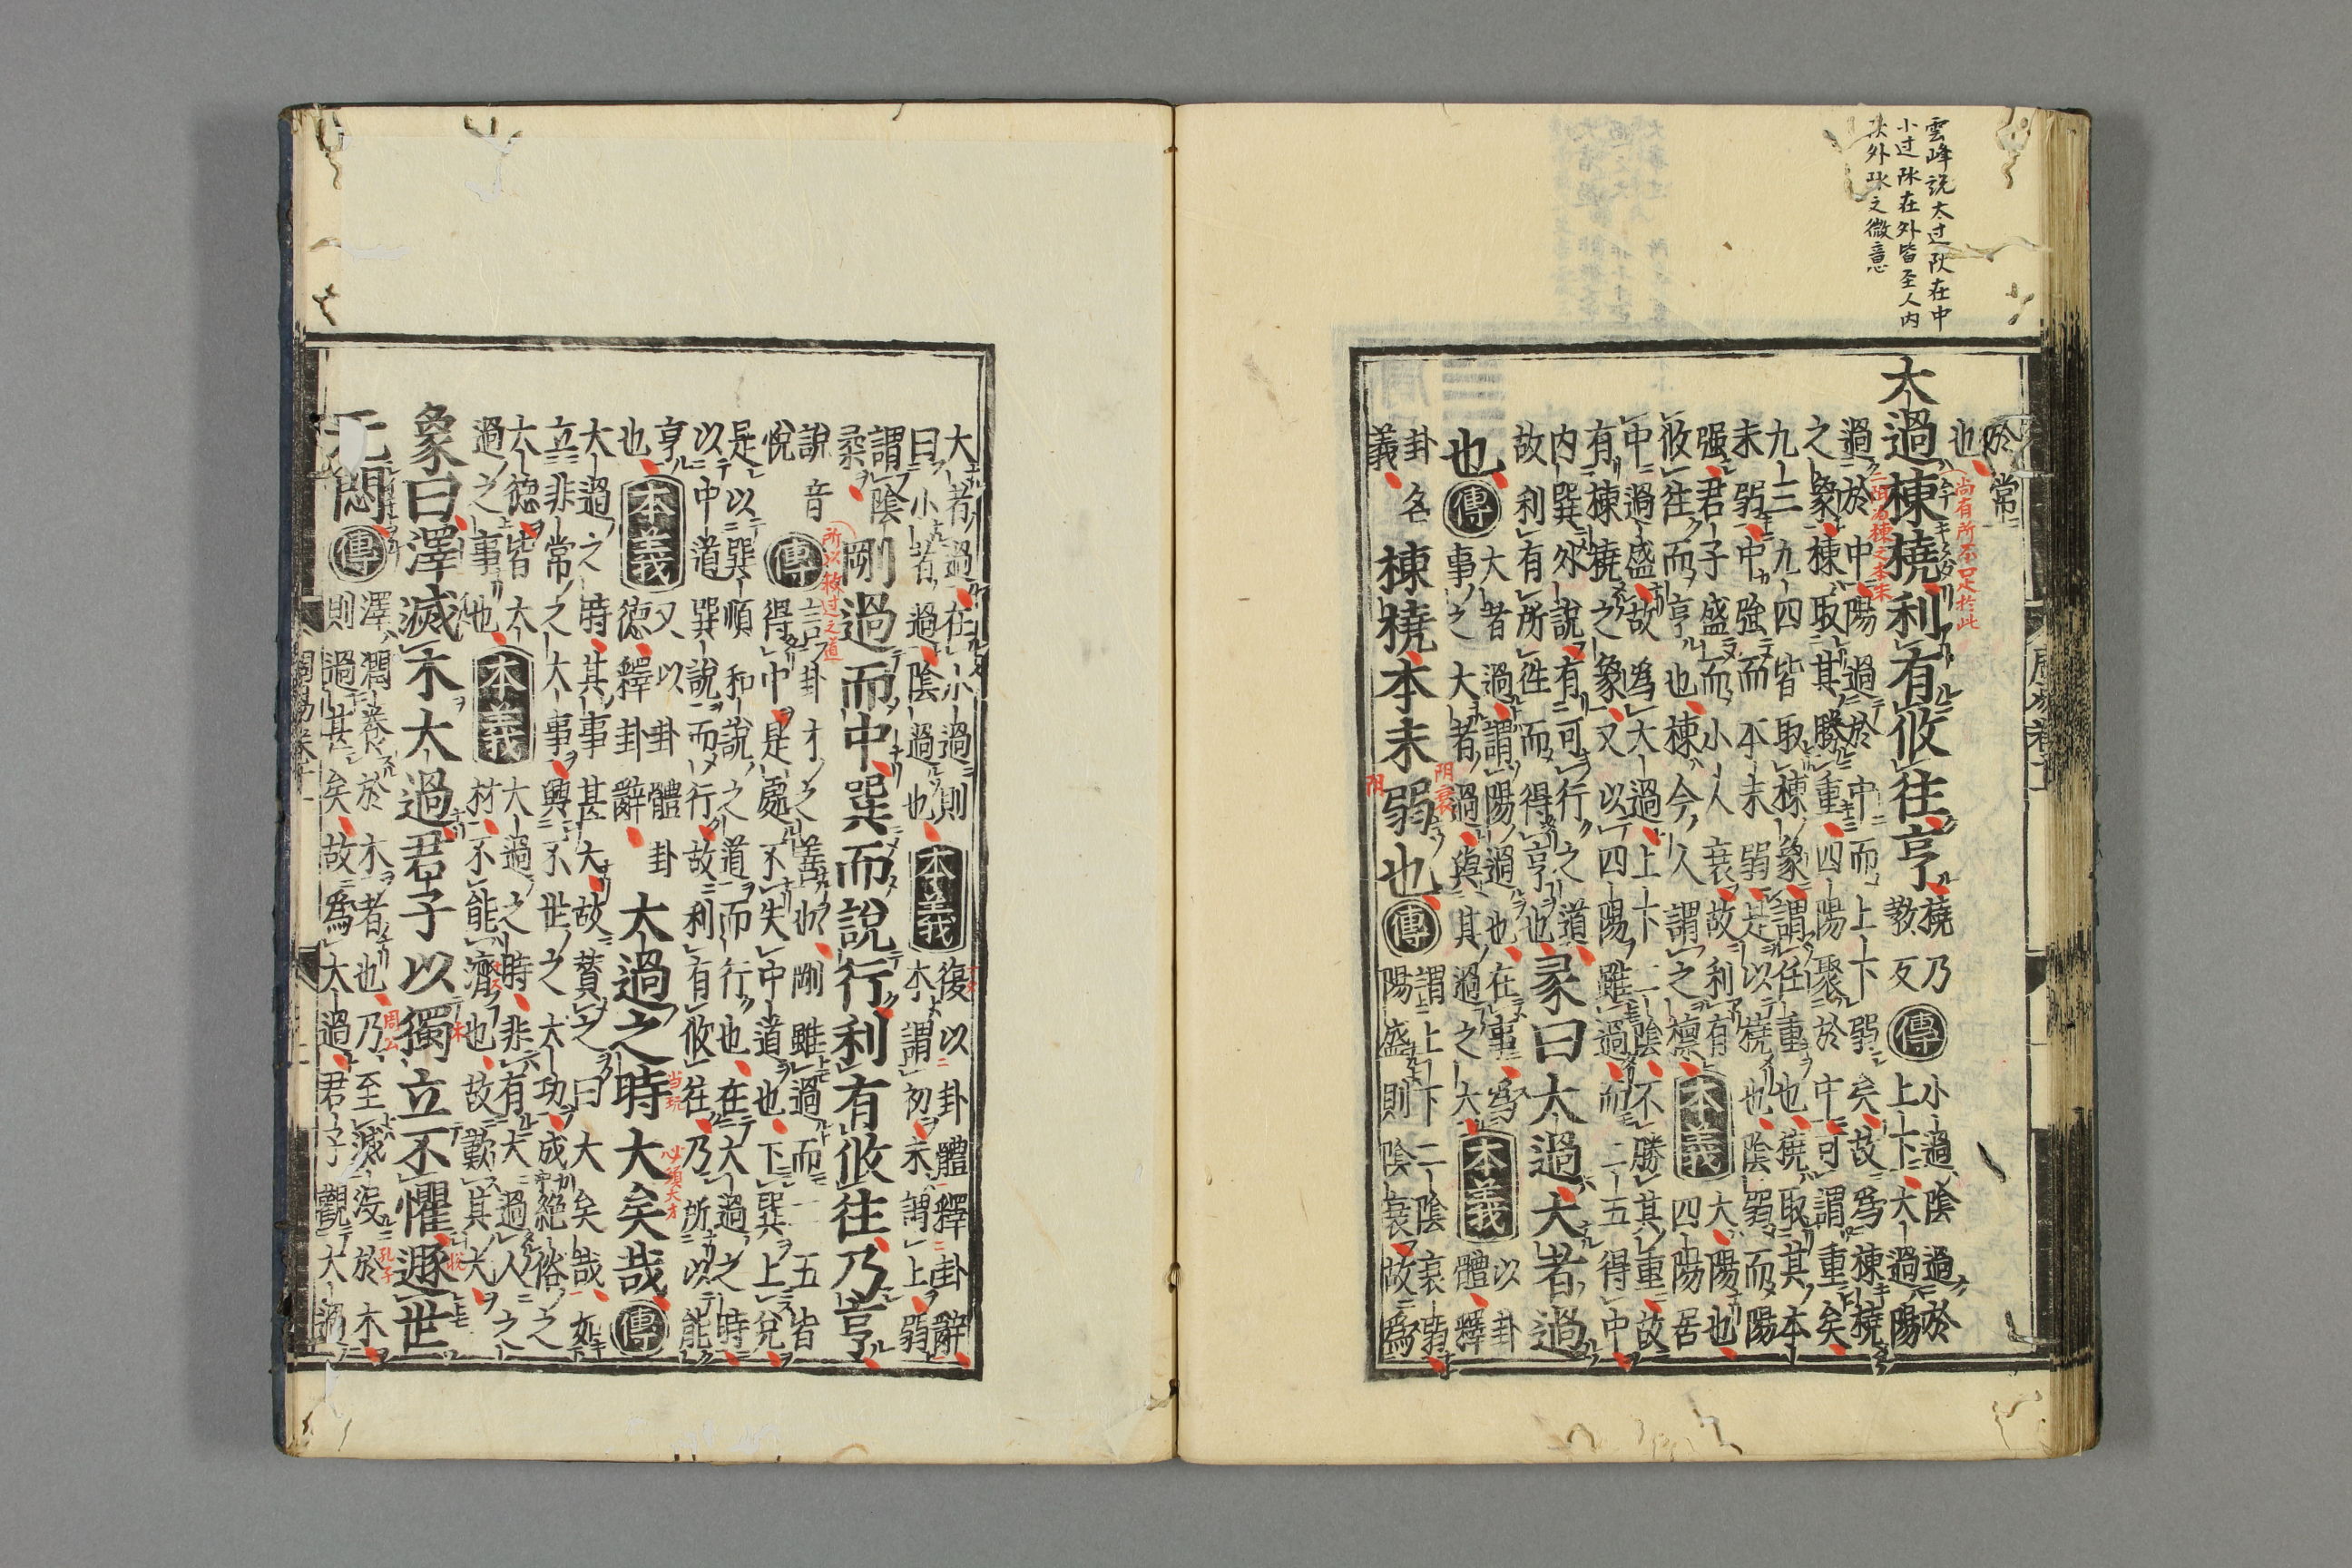 小过陽在外皆至人内
於常
也
尚有所不足於此
大過棟橈利有攸往亨
橈乃
教反
傳
小過陰過於
上下大過陽
過於中陽過於中而上下弱矣故爲棟橈
之象棟取其勝重四陽聚於中可謂重矣
九三九四皆取棟象謂任重也橈取其本
末弱中強而本末弱是以橈也陰弱而陽
强君子盛而小人衰故利有
攸往而亨也棟今人謂之檁
本義
大陽也
四陽居
中過盛故爲大過上下二陰不勝其重故
有棟橈之象又以四陽雖過而二五得中
内巽外說有可行之道
故利有所往而得亨也
彖曰大過大者過
也
傳
大者過謂陽過也在事爲
事之大者過與其過之大
本義
以卦
體釋
卦名
義
棟橈本末弱也
傳
謂上下二陰衰弱
陽盛則陰衰故爲
大者過在小過則
曰小者過陰過也
本義
復以卦體釋卦辭
本謂初末謂上弱
謂陰
柔
剛過而中巽而說行利有攸往乃亨
所以救过之道
說音
悅
傳
言卦才之善也剛雖過而二五皆
得中是處不失中道也下巽上兌
是以巽順和說之道而行也在大過之時
以中道巽說而行故利有攸往乃所以能
亨
也
本義
又以卦體卦
德釋卦辭
大過之時大矣哉
傳
当玩
必須大才
大過之時其事甚大故贊之曰大矣哉如
立非常之大事興不世之大功成絕俗之
大德皆大
過之事也
本義
大過之時非有大過人之
材不能濟也故歎其大
象曰澤滅木大過君子以獨立不懼遯世
无悶
傳
澤潤養於木者也乃至滅沒於木
則過甚矣故爲大過君子觀大過
周公
孔子